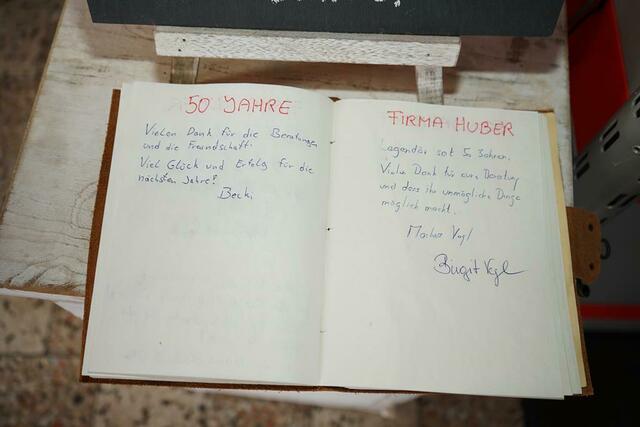 50 JAHRE
Vielen Dank für die Beratungen
und die Freundschaft.
Viel Glück und Erfolg für die
nächsten Jahre!
Becki
FIRMA HUBER
Legendär seit 50 Jahren.
Vielen Dank für eure Beratung
und dass ihr unmögliche Dinge
möglich macht.
Vogl
Birgit Vogl